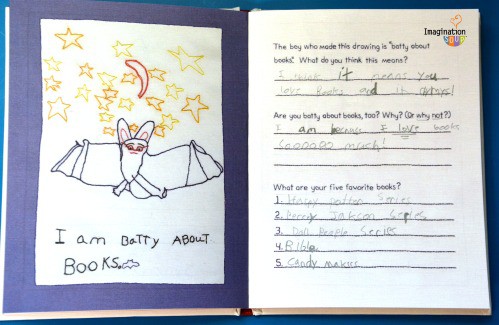 Imagination
I am Batty ABOUT
Books.
The boy who made this drawing is "batty about
books". What do you think this means?
I think it means you
love Books and
Are you batty about books, too? Why? (Or why not?)
I am because I love books
Sooooooo much!
What are your five favorite books?
1. Harry Series
2. Series
3. Series
4. Bible
5. Candy